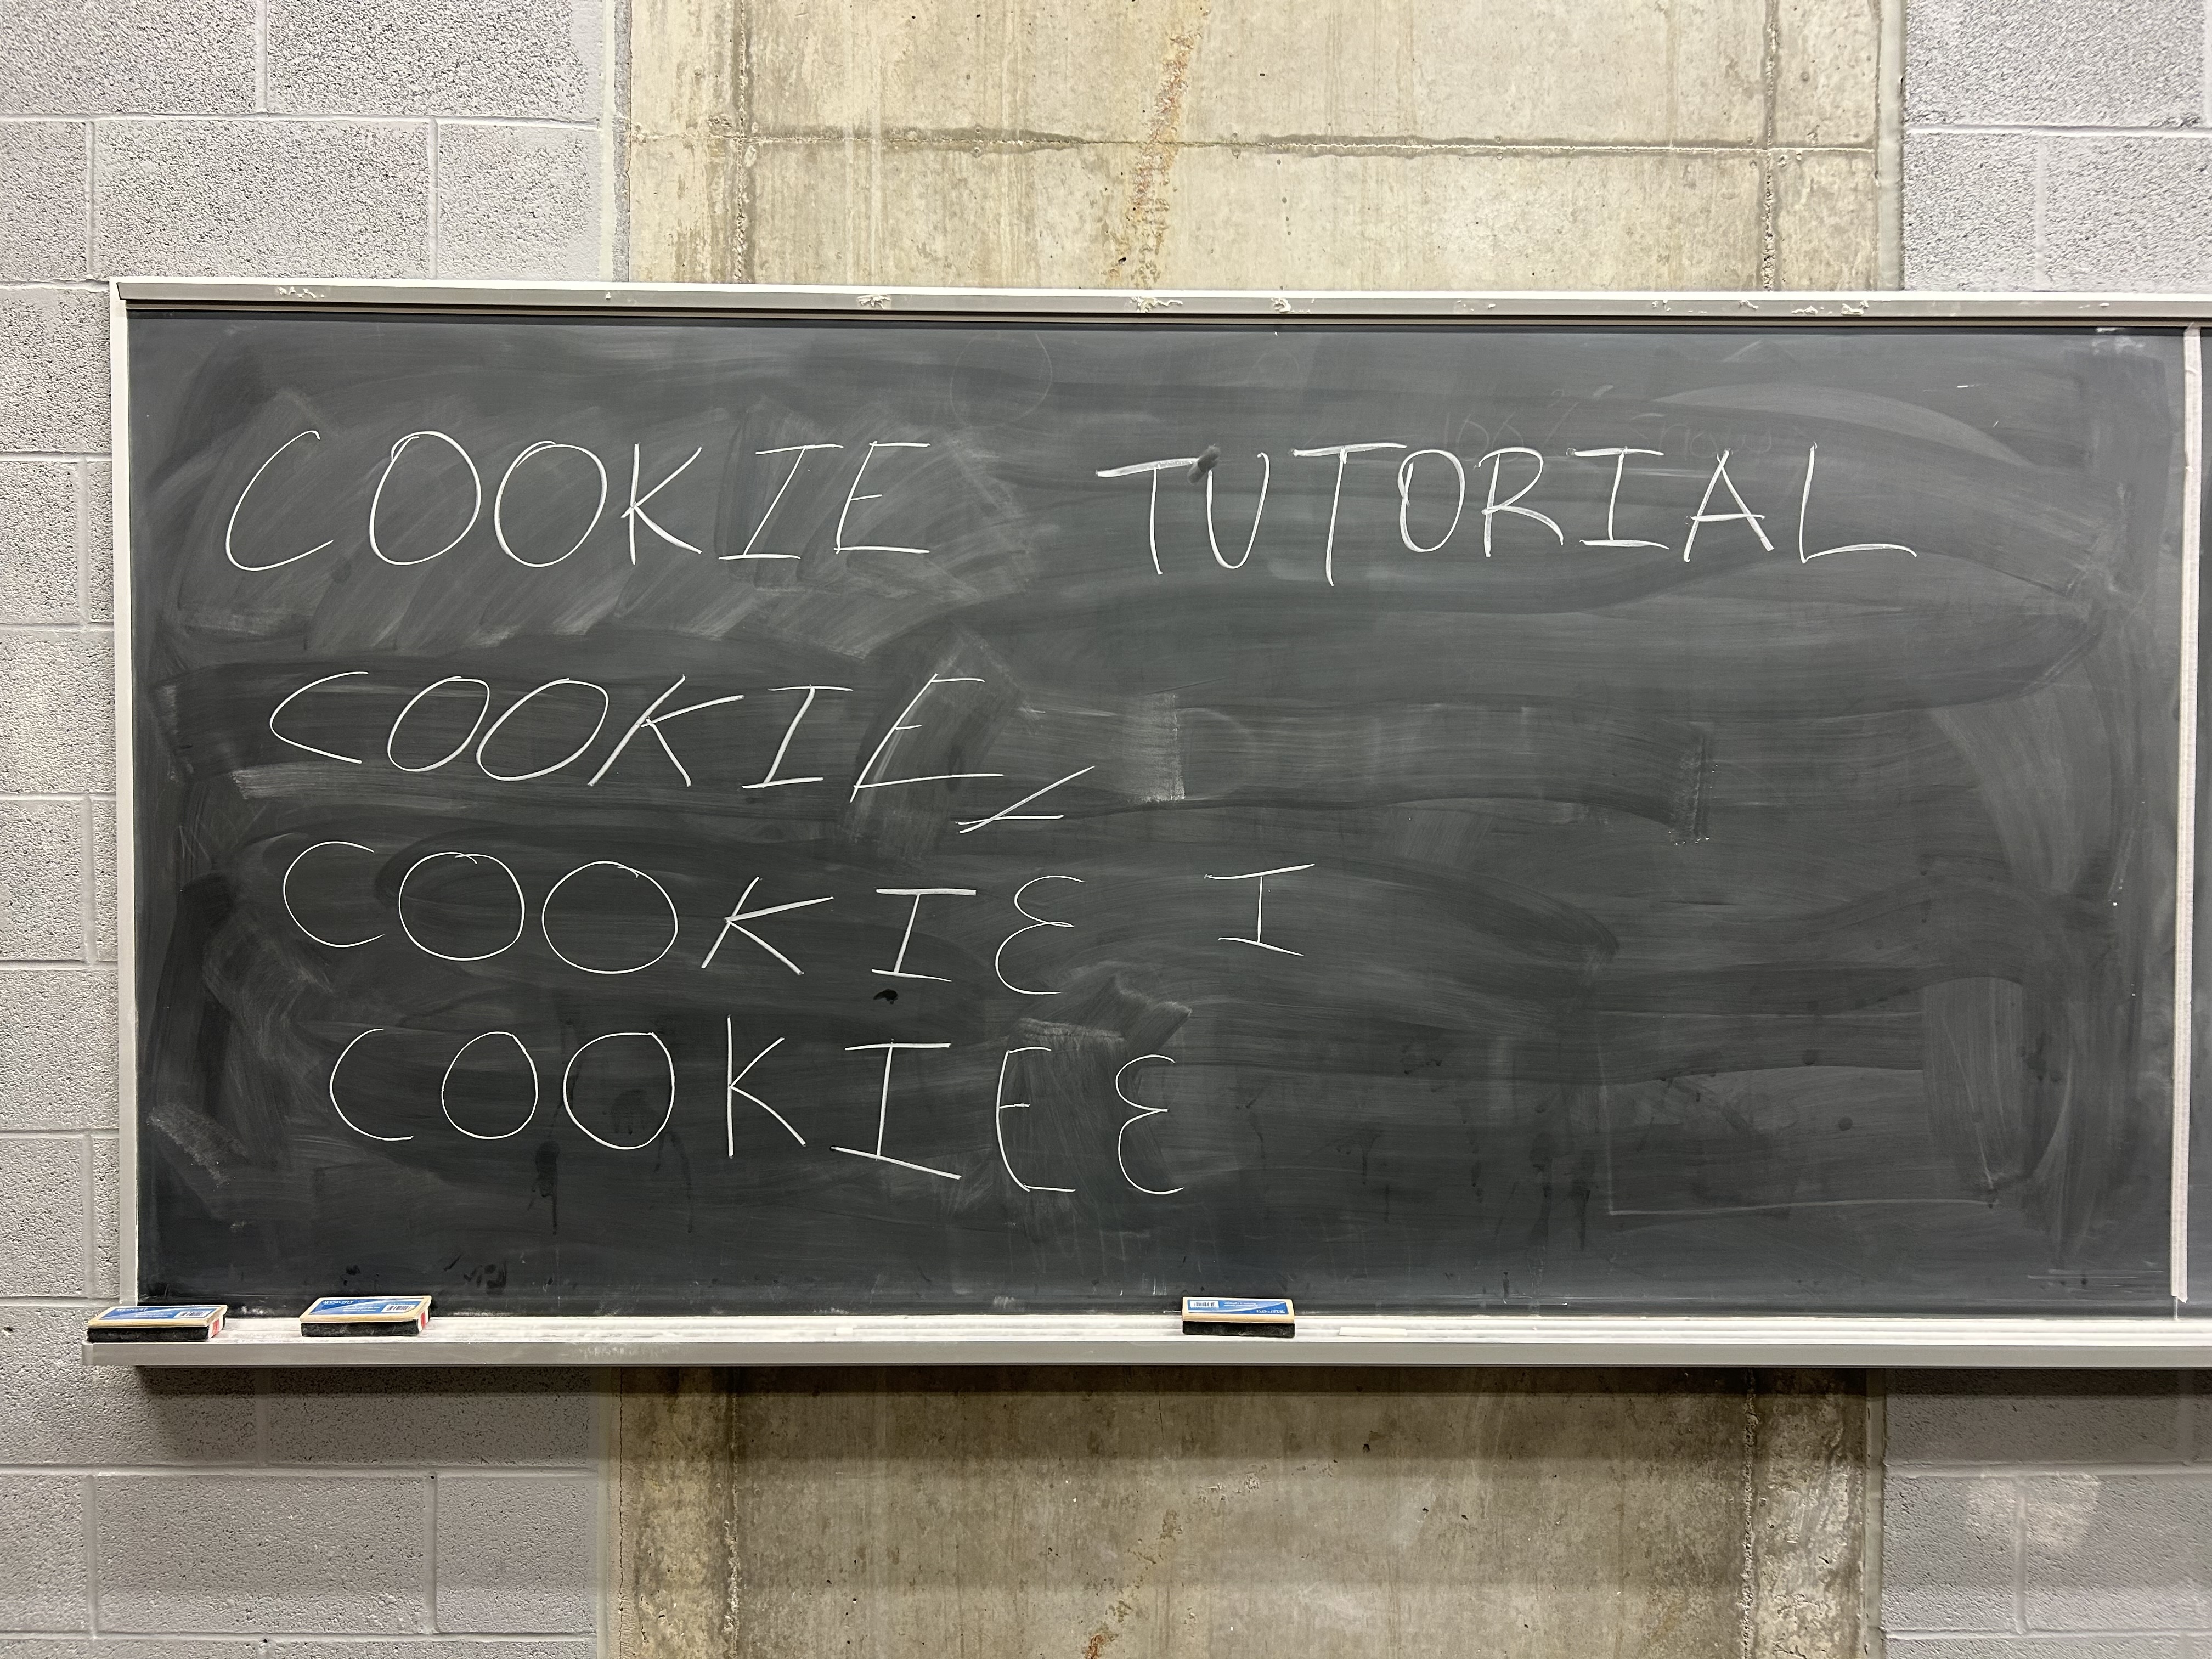 COOKIE TUTORIAL
COOKIE
COOKIE I
COOKIEE